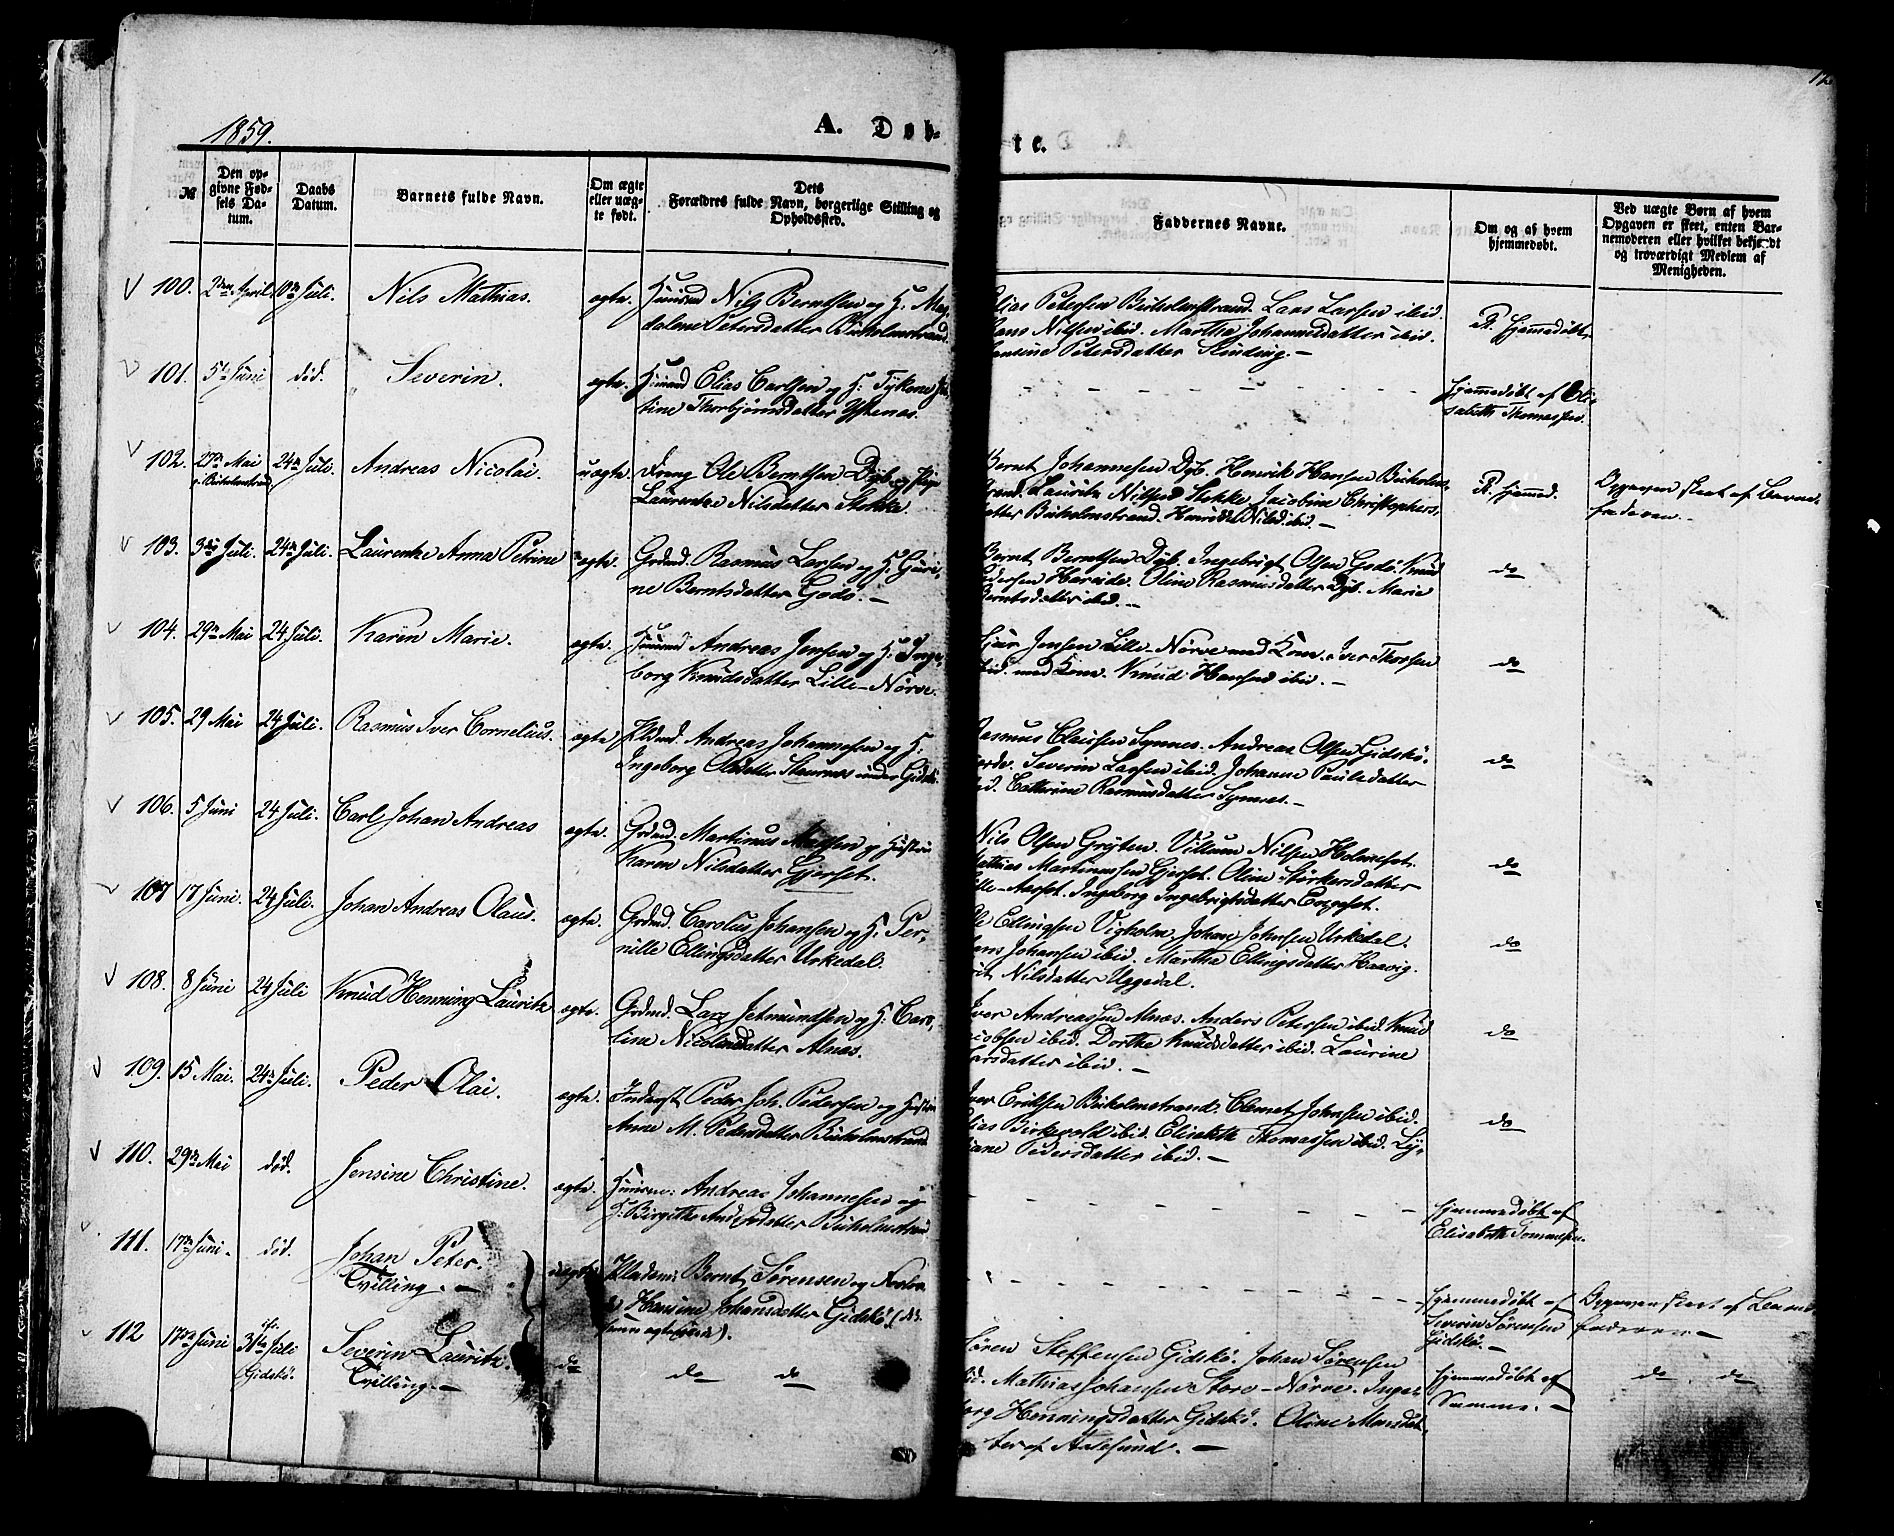 1859.
A. Døb-
te.
№
Den op-
givne Fød-
sels Da-
tum.
Daabs
Datum.
Barnets fulde Navn.
Om ægte
eller uæg-
te født.
Dets
Forældres fulde Navn, borgerlige Stilling og
Opholdssted.
Faddernes Navne.
Om og af hvem
hjemmedøbt.
Ved uægte Børn af hvem
Opgaven er skeet, enten Bar-
nemoderen eller hvilket bekjendt
og troværdigt Medlem af
Menigheden.
100. 2den April 10de Juli. Nils Mathias. ægte. Huusmd Nils Berntsen og H. Mag-
dalene Petersdatter Buholmstrand
Elias Petersen Buholmstrand. Lars Larsen ibid.
Hans Nilsen ibid. Martha Johannesdatter ibid.
Hansine Petersdatter Slinding. —
R. hjemmedøbt.
101. 5te Juni død. Severin. ægte. Huusmd Elias Carlsen og H:
Thorbjörnsdatter Ystenæs.
hjemmedøbt af Eli-
sabeth Thomassen.
102. 27de Mai 24de Juli. Andreas Nicolai. uægte. Dreng Ole Berntsen Dyb og Pige
i Buholmstrand
Laurentze Nilsdatter Stokke.
Bernt Johannesen Dyb. Henrik Hansen Buholm-
strand. Lauritz Nilsen Stokke. Jacobine Christophers-
datter Buholmstrand. Nilsd ibid. —
R. hjemmed.
Opgaven skeet af Barne-
faderen. —
103. 3die Juli. 24de Juli. Laurentze Anna Petrine ægte. Grdmd. Rasmus Larsen og H. Guri-
ne Berntsdatter Godö. —
Bernt Berntsen Dyb. Ingebrigt Olsen Godö. Knud
Pedersen Hareide. Oline Rasmusdatter Dyb. Marie
Berntsdatter ibid. —
do
104. 29de Mai 24 Juli. Karen Marie. ægte. Huusmd Andreas Jensen og H. Inge-
borg Knudsdatter Lille-Nörve.
Jensen Lille-Nörve med Kone. Iver Thorsen
ibid. med Kone. Knud Hansen ibid. —
do
105. 29 Mai 24 Juli. Rasmus Iver Cornelius. ægte Pldmd. Andreas Johannesen og H.
Ingeborg Olsdatter Staurnes under Gidskö
Rasmus Claussen Synnes. Andreas Olsen Gidskö-
. Severin Larsen ibid. Johanne Paulsdatter
ibid. Cathrine Rasmusdatter Synnes. —
do
106. 5 Juni 24 Juli. Carl Johan Andreas ægte. Grdmd. Martinus Madsen og Hustru
Karen Nilsdatter Gjerset.
Nils Olsen Gryten. Villum Nilsen Holmeset.
Mathias Martinussen Gjerset. Oline Störkersdatter
Lille-Aarset. Ingeborg Ingebrigtsdatter Emset.
do
107 17 Juni. 24 Juli. Johan Andreas Olaus. ægte. Grdmd. Carolus Johansen og H. Per-
nille Ellingsdatter Urkedal.
Ole Ellingsen Vigholm. Johan Johnsen Urkedal.
Hans Johansen ibid. Martha Ellingsdatter Haavig.
Nilsdatter Uggedal.
do
108. 8 Juni 24 Juli Knud Henning Lauritz ægte. Grdmd. Lars Jetmundsen og H. Caro-
line Nicolaisdatter Alnæs.
Iver Andreassen Alnæs. Anders Petersen ibid. Knud
Jacobsen ibid. Dorthe Knudsdatter ibid. Laurine
Larsdatter ibid. —
do
109. 15 Mai. 24de Juli. Peder Olai. ægte. Inderst Peder Joh. Pedersen og Hustru
Anne M. Pedersdatter Buholmstrand
Iver Eriksen Buholmstrand. Clemet Johnsen ibid.
Elias Birkevold ibid. Elisabeth Thomassen ibid. Ly-
Pedersdatter ibid. —
do
110. 29de Mai død. Jensine Christine. ægte. Huusm: Andreas Johannesen og
H: Birgithe Andersdatter Buholmstrand
hjemmedøbt af
Elisabeth Tomassen.
111. 17de Juni. død. Johan Peter. uægte Pladsm: Bernt Sørensen og Enke
Tvilling. —
Hansine Johansdatter Gidskö
hjemmedøbt af
Severin Sørensen
Gidskö. —
Opgaven skeet af Barne-
faderen —
112 17de Juni 31te Juli Severin Lauritz. do do do
Gidskö. Tvilling. —
Sören Steffensen Gidskö. Johan Sörensen
ibid. Mathias Johansen Store-Nörve. Inge-
borg Henningsdatter Gidskö. Oline Monsdat-
ter af Aalesund. —
hjemmedøbt af
Samme. —
do do